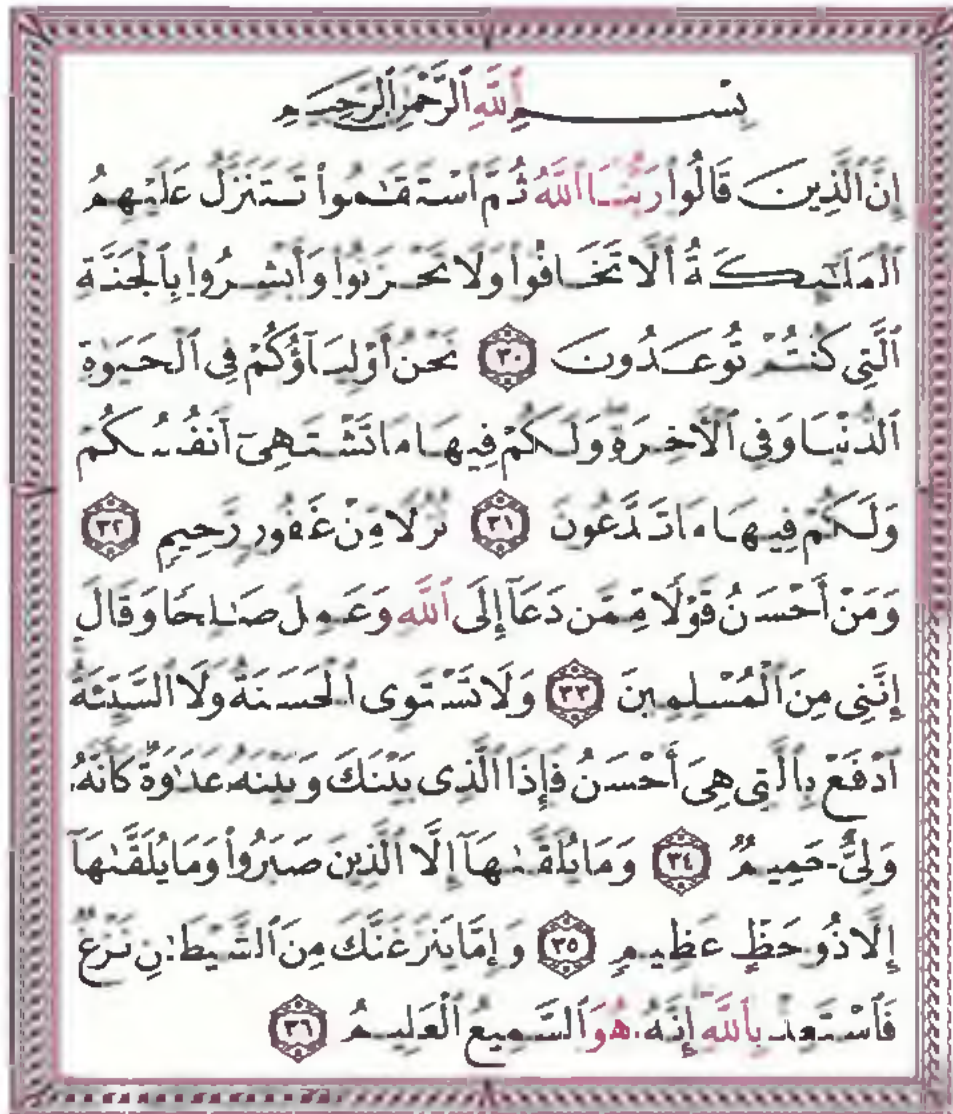 بِسْمِ ٱللَّهِ ٱلرَّحْمَٰنِ ٱلرَّحِيمِ
إِنَّ ٱلَّذِينَ قَالُوا۟ رَبُّنَا ٱللَّهُ ثُمَّ ٱسْتَقَٰمُوا۟ تَتَنَزَّلُ عَلَيْهِمُ
ٱلْمَلَٰٓئِكَةُ أَلَّا تَخَافُوا۟ وَلَا تَحْزَنُوا۟ وَأَبْشِرُوا۟ بِٱلْجَنَّةِ
ٱلَّتِى كُنتُمْ تُوعَدُونَ ٣٠ نَحْنُ أَوْلِيَآؤُكُمْ فِى ٱلْحَيَوٰةِ
ٱلدُّنْيَا وَفِى ٱلْأَخِرَةِ وَلَكُمْ فِيهَا مَا تَشْتَهِىٓ أَنفُسُكُمْ
وَلَكُمْ فِيهَا مَا تَدَّعُونَ ٣١ نُزُلًا مِّنْ غَفُورٍ رَّحِيمٍ ٣٢
وَمَنْ أَحْسَنُ قَوْلًا مِّمَّن دَعَآ إِلَى ٱللَّهِ وَعَمِلَ صَٰلِحًا وَقَالَ
إِنَّنِى مِنَ ٱلْمُسْلِمِينَ ٣٣ وَلَا تَسْتَوِى ٱلْحَسَنَةُ وَلَا ٱلسَّيِّئَةُ
ٱدْفَعْ بِٱلَّتِى هِىَ أَحْسَنُ فَإِذَا ٱلَّذِى بَيْنَكَ وَبَيْنَهُۥ عَدَٰوَةٌ كَأَنَّهُۥ
وَلِىٌّ حَمِيمٌ ٣٤ وَمَا يُلَقَّىٰهَآ إِلَّا ٱلَّذِينَ صَبَرُوا۟ وَمَا يُلَقَّىٰهَآ
إِلَّا ذُو حَظٍّ عَظِيمٍ ٣٥ وَإِمَّا يَنزَغَنَّكَ مِنَ ٱلشَّيْطَٰنِ نَزْغٌ
فَٱسْتَعِذْ بِٱللَّهِ إِنَّهُۥ هُوَ ٱلسَّمِيعُ ٱلْعَلِيمُ ٣٦